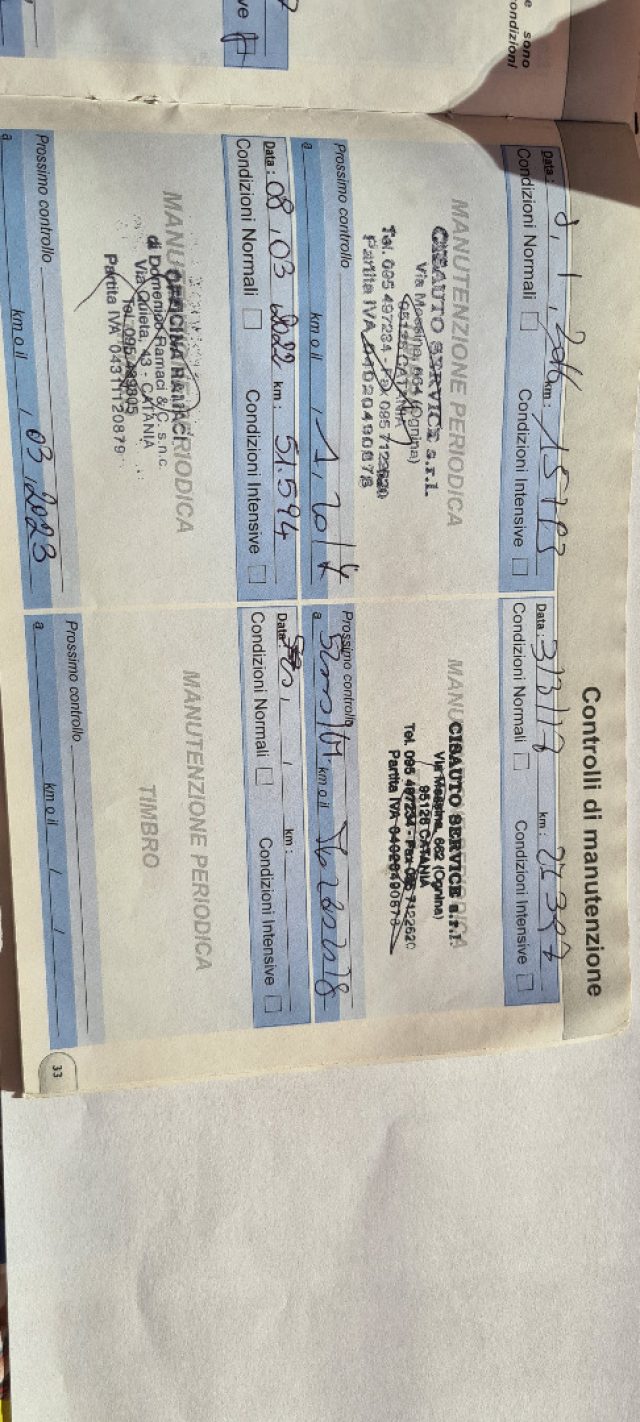 e sono
ondizioni
ve
Controlli di manutenzione
Data : 1, 2016 km :
Condizioni Normali Condizioni Intensive
MANUTENZIONE PERIODICA
CISAUTO SERVICE s.r.l.
Via Messina, 664 (Ognina)
95126 CATANIA
Tel. 095 497234 - Fax 095 7122620
Partita IVA 04020490878
Prossimo controllo
a km o il , 1, 2017
Data : km :
Condizioni Normali Condizioni Intensive
MANUTENZIONE PERIODICA
CISAUTO SERVICE s.r.l.
Via Messina, 662 (Ognina)
95126 CATANIA
Tel. 095 497234 - Fax 095 7122620
Partita IVA 04020490878
Prossimo controllo
a km o il
Data : 08, 03, 2022 km : 51.594
Condizioni Normali Condizioni Intensive
MANUTENZIONE PERIODICA
OFFICINA RAMACI
di Domenico Ramaci & C. s.n.c.
Via Quieta, 43 - CATANIA
Tel. 095
Partita IVA 04311120879
Prossimo controllo
a km o il , 03, 2023
Data : km :
Condizioni Normali Condizioni Intensive
MANUTENZIONE PERIODICA
TIMBRO
Prossimo controllo
a km o il
33